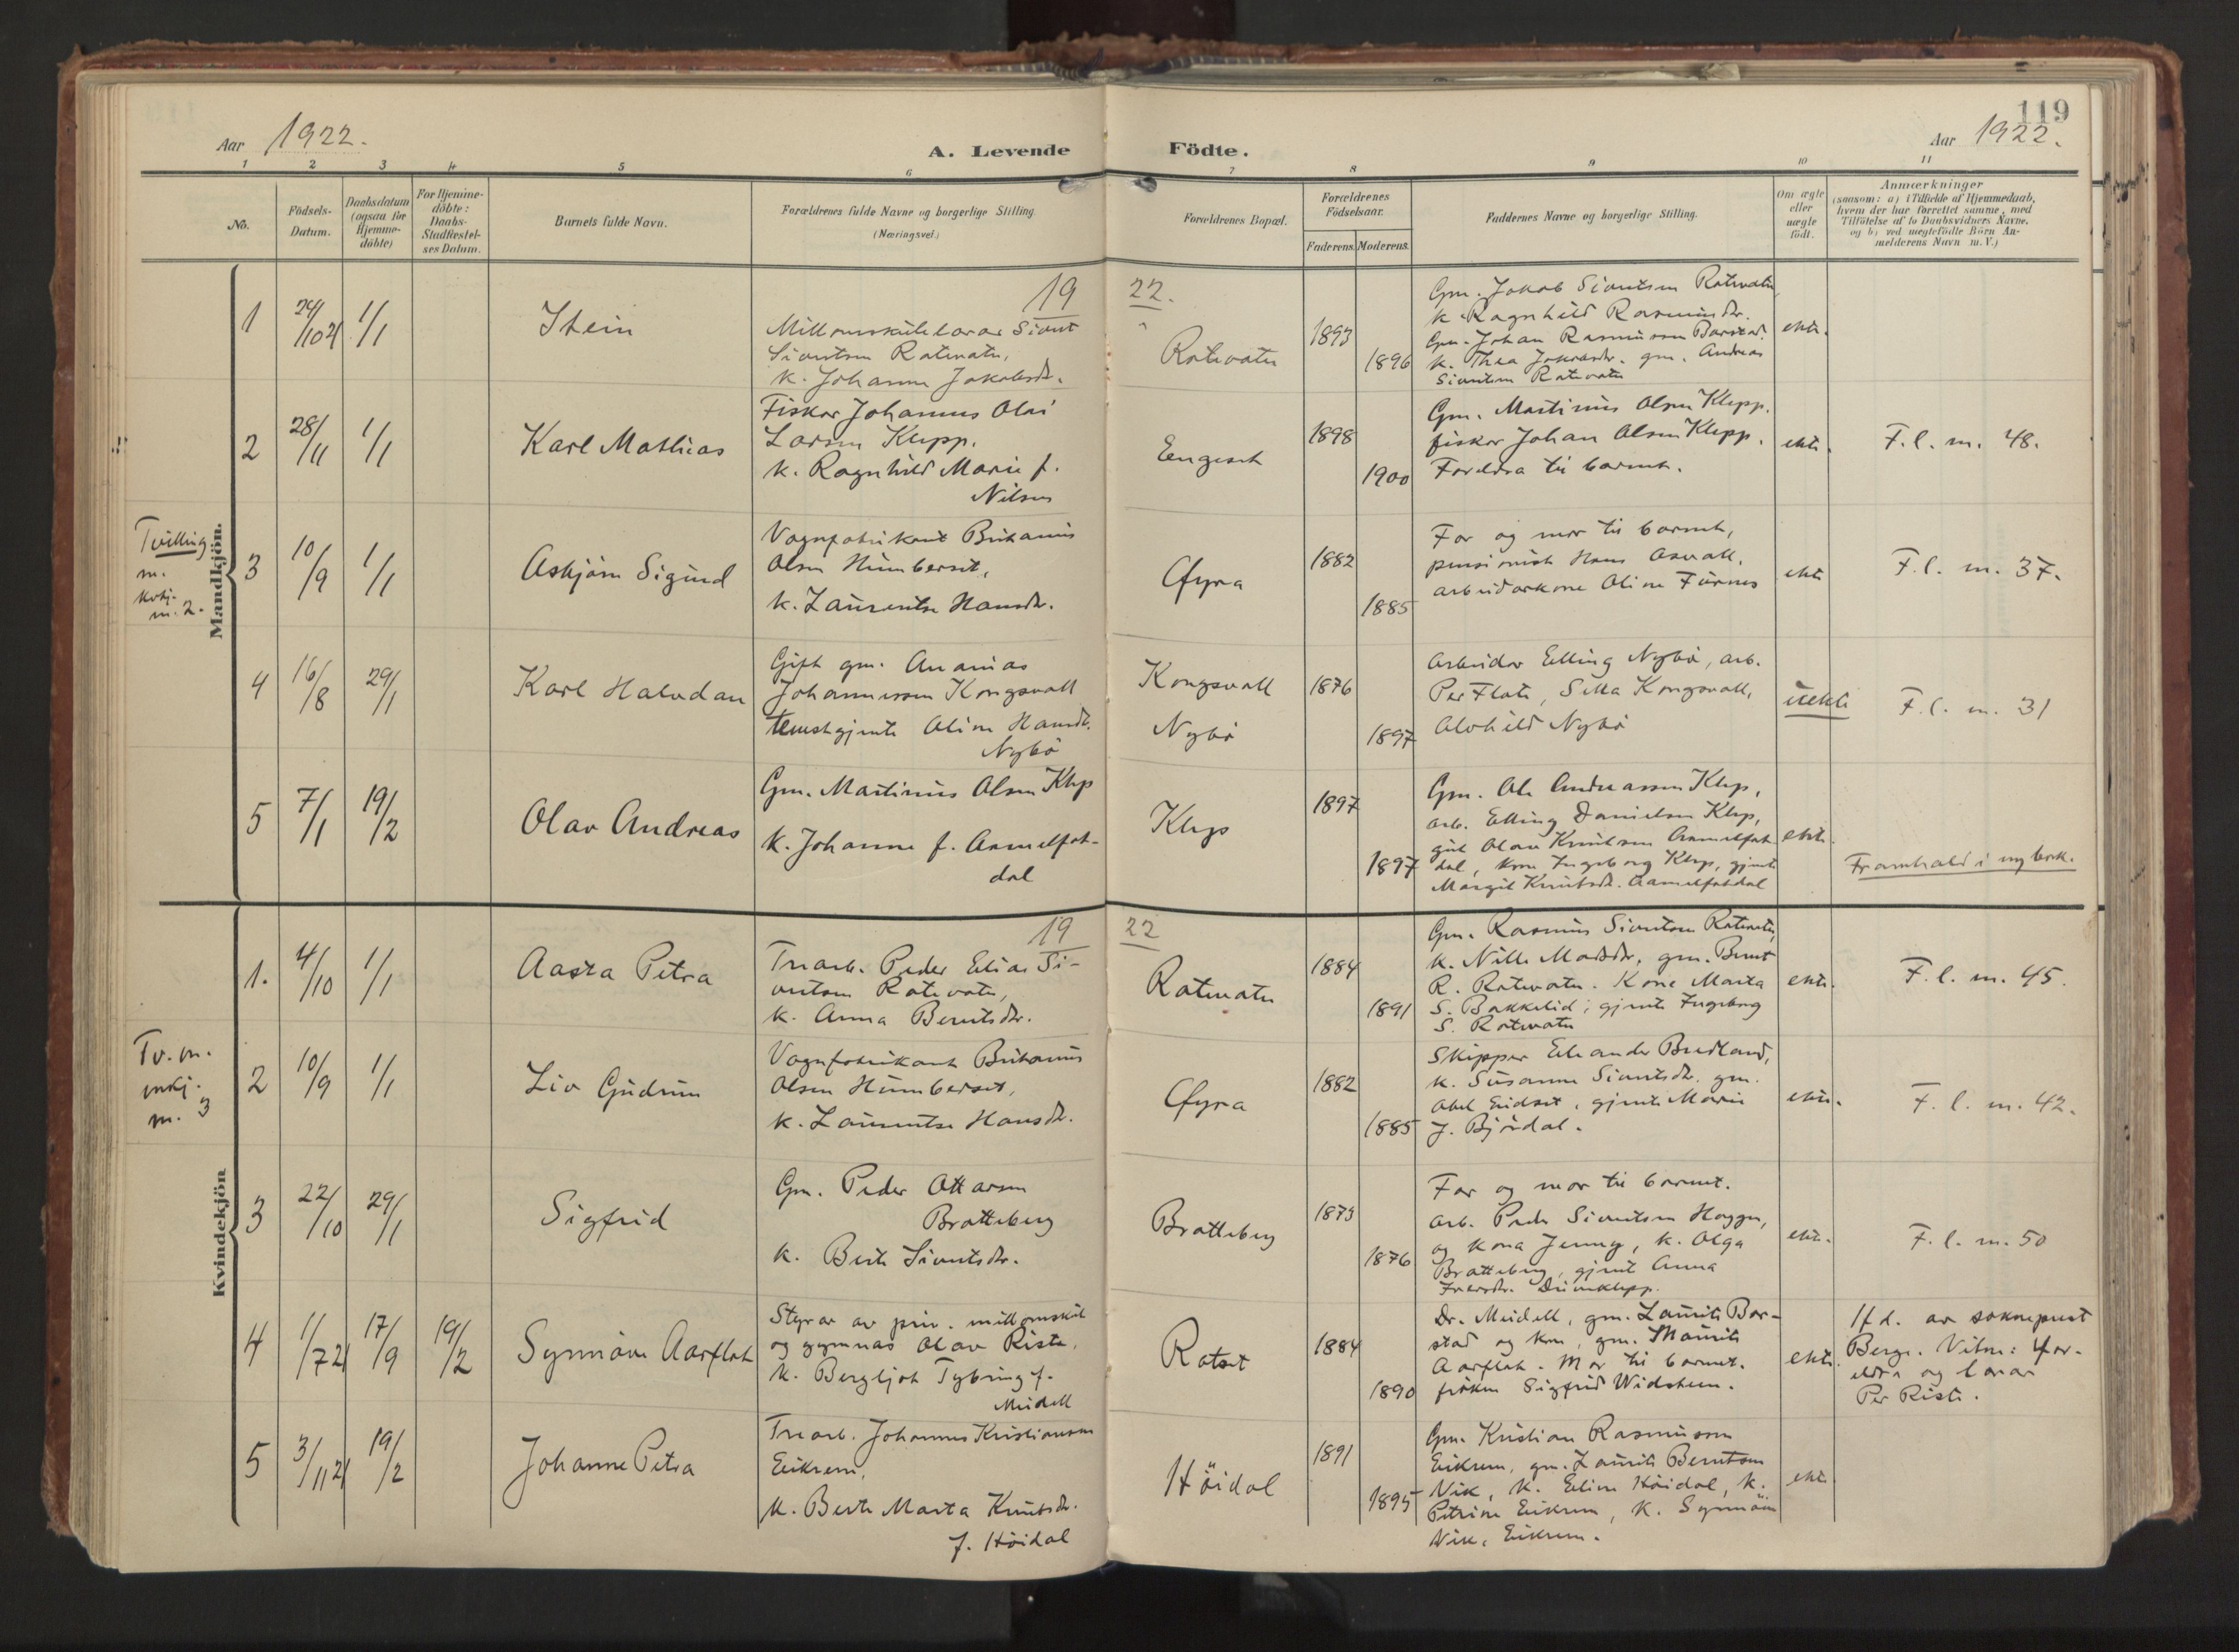 119
Aar 1922.
A. Levende Födte.
Aar 1922.
1 2 3 4 5 6 7 8 9 10 11
No.
Födsels-
Datum.
Daabsdatum
(ogsaa for
Hjemme-
döbte)
For Hjemme-
döbte:
Daabs-
Stadfæstel-
ses Datum.
Barnets fulde Navn.
Forældrenes fulde Navne og borgerlige Stilling
(Næringsvei.)
Forældrenes Bopæl.
Forældrenes
Födselsaar.
Faderens. Moderens.
Faddernes Navne og borgerlige Stilling.
Om ægte
eller
uægte
födt.
Anmærkninger
(saasom: a) i Tilfælde af Hjemmedaab,
hvem der har forrettet samme, med
Tilföielse af to Daabsvidners Navne,
og b) ved uægtefödte Börn An-
melderens Navn m. V.)
Mandkjön.
19 22.
1
24/10 21
1/1
Stein
Sivert
Sivertsen Ratevatn,
k. Johanne Jakobsdr.
Ratevatn
1893
1896
Gm. Jakob Sivertsen Ratevatn,
k. Ragnhild Rasmusdr.
Gm. Johan Rasmussen Barstad.
k. Thea Jakobsdr. gm. Andreas
Sivertsen Ratevatn
ekte.
2
28/11
1/1
Karl Mathias
Fiskar Johannes Olai
Larsen Klepp.
k. Ragnhild Marie f.
Nilsen
Engeset
1898
1900
Gm. Martinus Olsen Klepp.
fiskar Johan Olsen Klepp.
Foreldra til barnet.
ekte.
F. l. m. 48.
Tvilling
m.
kvkj.
m. 2.
3
10/9
1/1
Asbjörn Sigurd
Vognfabrikant Britanus
Olsen Humberset,
k. Laurentse Hansdr.
Öfyra
1882
1885
Far og mor til barnet,
pensionist Hans Aasvall,
arbeidarkone Oline Furnes
ekte
F. l. m. 37.
4
16/8
29/1
Karl Halvdan
Gift gm. Ananias
Johannessen Kongsvoll
tenestgjente Oline Hansdr.
Nybö
Kongsvoll
Nybö
1876
1897
Arbeidar Elling Nybö, arb.
Per Flate, Silla Kongsvoll,
Alvhild Nybö
uekte
F. l. m. 31
5
7/1
19/2
Olav Andreas
Gm. Martinus Olsen Klep
k. Johanne f. Aamelfot-
dal
Klep
1897
1897
Gm. Ole Andreassen Klep,
arb. Elling Danielsen Klep,
gut Olav Knutsen Aamelfot
dal, kone Ingeborg Klep, gjente
Margit Knutsdr. Aamelfotdal
ekte.
Framhald i ny bok.
Kvindekjön
19 22
1.
4/10
1/1
Aasta Petra
Trearb. Peder Elias Si-
vertsen Ratevatn,
k. Anna Berntsdr.
Ratevatn
1884
1891
Gm. Rasmus Sivertsen Ratevatn,
k. Nille Madsdr, gm. Bernt
R. Ratevatn. Kone Marta
S. Bakkelid; gjente Ingeborg
S. Ratevatn
ekte.
F. l. m. 45.
Tv. m.
mkj.
m. 3
2
10/9
1/1
Liv Gudrun
Vognfabrikant Britanus
Olsen Humberset,
k. Laurentse Hansdr.
Öfyra
1882
1885
Skipper Eleander Bredland,
k. Susanne Sivertsdr. gm.
Abel Eidset, gjente Marie
J. Björdal.
ekte.
F. l. m. 42.
3
22/10
29/1
Sigfrid
Gm. Peder Ottarsen
Bratteberg
k. Berte Sivertsdr.
Bratteberg
1873
1876
Far og mor til barnet.
arb. Peder Sivertsen Haggen,
og kona Jenny, k. Olga
Bratteberg, gjente Anna
Iversdr. Driveklepp.
ekte.
F. l. m. 50
4
1/7 21
17/9
19/2
Synnöve Aarflot
Styrar av priv. millomskule
og gymnas Olav Riste,
k. Bergljot Tybring f.
Meidell
Rotset
1884
1890
Dr. Meidell, gm. Laurits Bar-
stad og kone, gm. Maurits
Aarflot. Mor til barnet.
fröken Sigfrid Widsteen.
ekte.
Hd. av sokneprest
Berge. Vitne: for-
eldra og lærar
Per Riste.
5
3/11 21
19/2
Johanne Petra
Trearb. Johannes Kristiansen
Eikrem,
k. Berte Marta Knutsdr.
f. Höidal
Höidal
1891
1895
Gm. Kristian Rasmussen
Eikrem, gm. Laurits Berntsen
Vik, k. Eline Höidal, k.
Petrine Eikrem, k. Synnöve
Vik, Eikrem.
ekte.